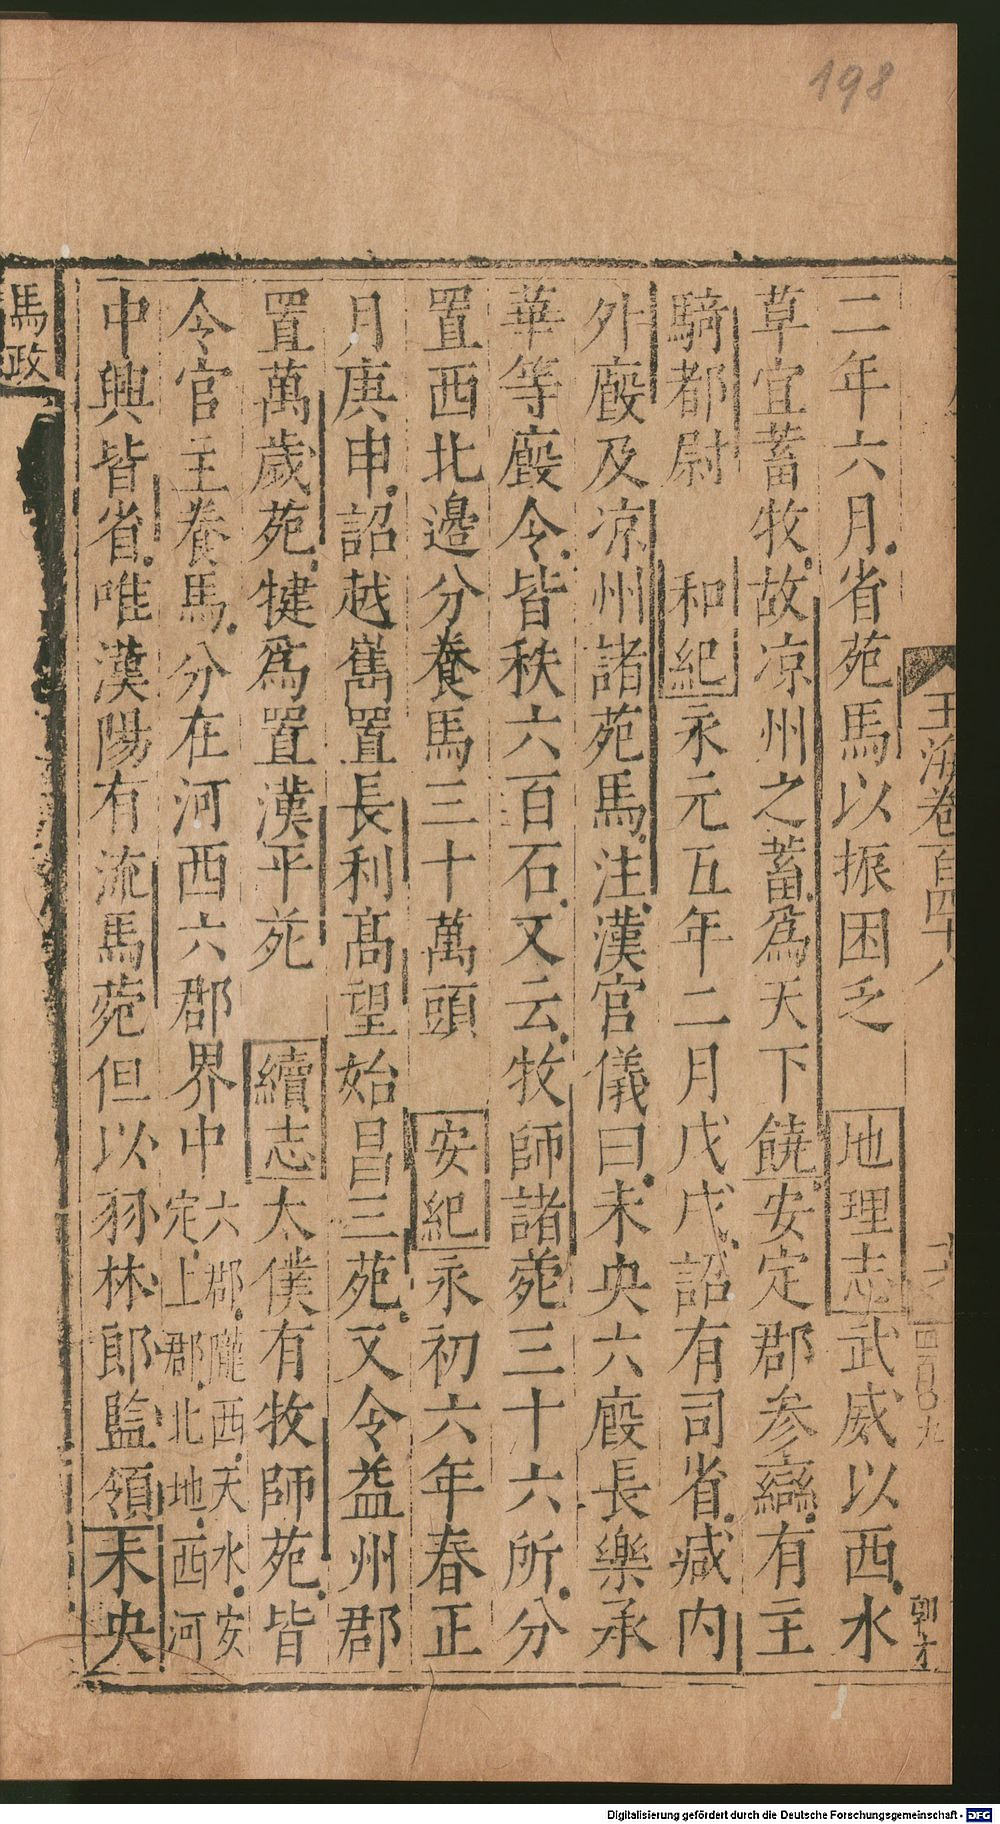 198
玉海卷百四十八
二年六月省苑馬以振困乏 地理志武威以西水
草宜蓄牧故凉州之蓄爲天下饒安定郡参䜌有主
騎都尉 和紀永元五年二月戊戌詔有司省减内
外廏及凉州諸苑馬注漢官儀曰未央六廏長樂承
華等廏令皆秩六百石又云牧師諸菀三十六所分
置西北邉分養馬三十萬頭 安紀永初六年春正
月庚申詔越嶲置長利高望始昌三苑又令益州郡
置萬歲苑犍爲置漢平苑 續志太僕有牧師苑皆
令官主養馬分在河西六郡界中六郡隴西天水安
定上郡北地西河
中興皆省唯漢陽有流馬菀但以羽林郎監領未央
馬政
Digitalisierung gefördert durch die Deutsche Forschungsgemeinschaft - DFG